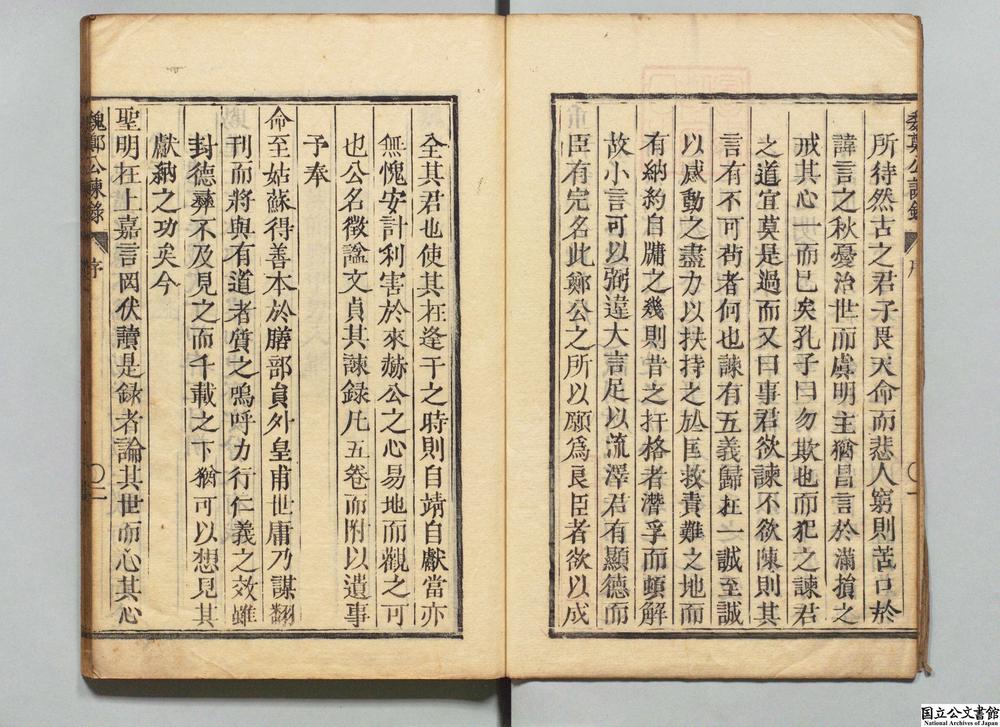 所待然古之君子畏天命而悲人窮則苦口於
諱言之秋憂治世而虞明主猶昌言於滿揹之
戒其心一而已矣孔子曰勿欺也而犯之諫君
之道宜莫是過而又曰事君欲諫不欲陳則其
言有不可茍者何也諫有五義歸在一誠至誠
以感動之盡力以扶持之於匡救責難之地而
有納約自牖之幾則昔之扞格者潛孚而頓解
故小言可以弼違大言足以流澤君有顯德而
臣有完名此鄭公之所以願爲良臣者欲以成
魏鄭公諫錄
序
全其君也使其在逢干之時則自靖自獻當亦
無愧安計利害於來赫公之心易地而觀之可
也公名徵謚文貞其諫録凡五卷而附以遺事
予奉
命至姑蘇得善本於膳部員外皇甫世庸乃謀翻
刊而將與有道者質之嗚呼力行仁義之效雖
封德彝不及見之而千載之下猶可以想見其
獻納之功矣今
聖明在上嘉言罔伏讀是録者論其世而心其心
魏鄭公諫錄
序
二
国立公文書館
National Archives of Japan